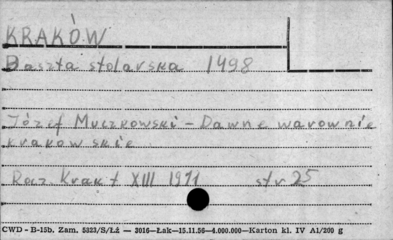 KRAKÓW
Baszta stolarska 1498
Józef Muczkowski - Dawne warownie
krakowskie
Rocz. Krak t XIII 1911 str 25
CWD - B-15b. Zam. 5823/S/Łż — 3016—Łak—15.11.56—4.000.000—Karton kl. IV A1/200 g